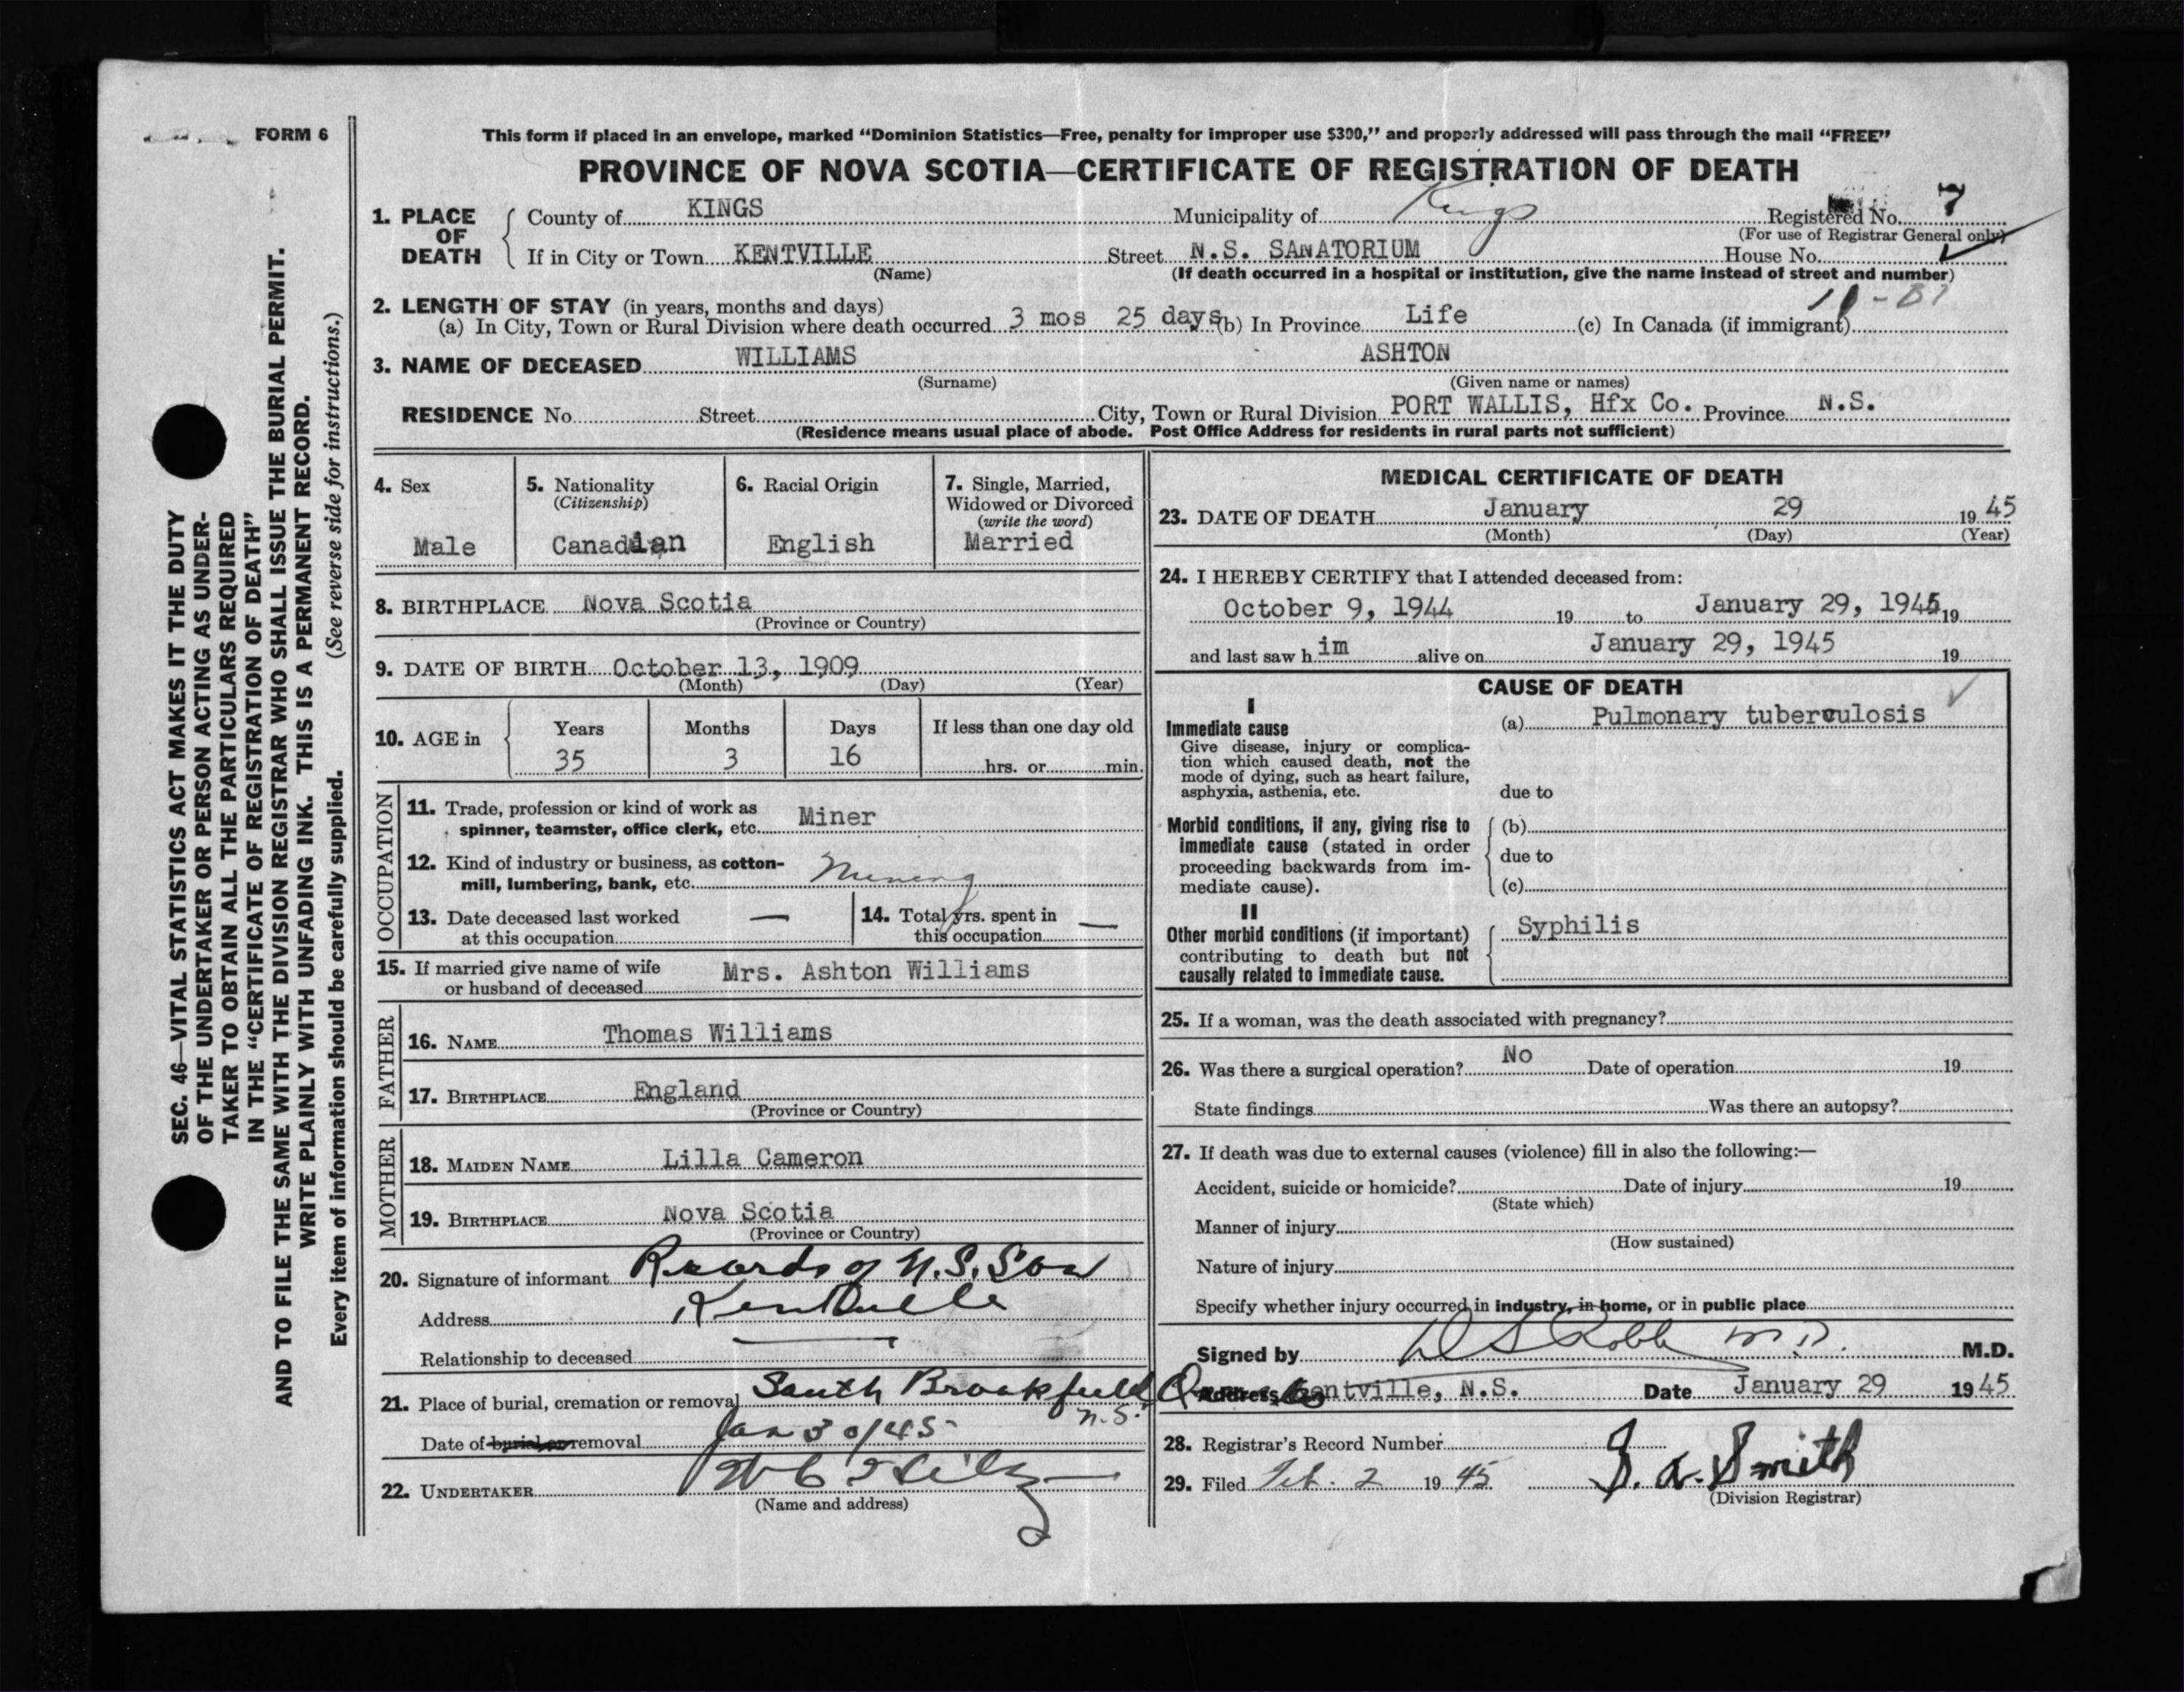 FORM 6
This form if placed in an envelope, marked “Dominion Statistics—Free, penalty for improper use $300,” and properly addressed will pass through the mail “FREE”
PROVINCE OF NOVA SCOTIA—CERTIFICATE OF REGISTRATION OF DEATH
1. PLACE OF DEATH
County of KINGS Municipality of Kings Registered No. 7
(For use of Registrar General only)
If in City or Town KENTVILLE Street N.S. SANATORIUM House No.
(Name) (If death occurred in a hospital or institution, give the name instead of street and number)
2. LENGTH OF STAY (in years, months and days)
(a) In City, Town or Rural Division where death occurred 3 mos 25 days (b) In Province Life (c) In Canada (if immigrant)
3. NAME OF DECEASED WILLIAMS ASHTON
(Surname) (Given name or names)
RESIDENCE No. Street City, Town or Rural Division PORT WALLIS, Hfx Co. Province N.S.
(Residence means usual place of abode. Post Office Address for residents in rural parts not sufficient)
SEC. 46—VITAL STATISTICS ACT MAKES IT THE DUTY
OF THE UNDERTAKER OR PERSON ACTING AS UNDER-
TAKER TO OBTAIN ALL THE PARTICULARS REQUIRED
IN THE “CERTIFICATE OF REGISTRATION OF DEATH”
AND TO FILE THE SAME WITH THE DIVISION REGISTRAR WHO SHALL ISSUE THE BURIAL PERMIT.
WRITE PLAINLY WITH UNFADING INK. THIS IS A PERMANENT RECORD.
Every item of information should be carefully supplied. (See reverse side for instructions.)
4. Sex
Male
5. Nationality
(Citizenship)
Canadian
6. Racial Origin
English
7. Single, Married,
Widowed or Divorced
(write the word)
Married
8. BIRTHPLACE Nova Scotia
(Province or Country)
9. DATE OF BIRTH October 13, 1909
(Month) (Day) (Year)
10. AGE in
Years Months Days If less than one day old
35 3 16 hrs. or min.
OCCUPATION
11. Trade, profession or kind of work as
spinner, teamster, office clerk, etc. Miner
12. Kind of industry or business, as cotton-
mill, lumbering, bank, etc. Mining
13. Date deceased last worked
at this occupation —
14. Total yrs. spent in
this occupation —
15. If married give name of wife
or husband of deceased Mrs. Ashton Williams
FATHER
16. NAME Thomas Williams
17. BIRTHPLACE England
(Province or Country)
MOTHER
18. MAIDEN NAME Lilla Cameron
19. BIRTHPLACE Nova Scotia
(Province or Country)
20. Signature of informant Records of N.S. San
Address Kentville
Relationship to deceased
21. Place of burial, cremation or removal South Brookfield
N.S.
Date of burial or removal Jan 30/45
22. UNDERTAKER
(Name and address)
MEDICAL CERTIFICATE OF DEATH
23. DATE OF DEATH January 29 1945
(Month) (Day) (Year)
24. I HEREBY CERTIFY that I attended deceased from:
October 9, 1944 19 to January 29, 1945 19
and last saw him alive on January 29, 1945 19
CAUSE OF DEATH
I
Immediate cause
Give disease, injury or complica-
tion which caused death, not the
mode of dying, such as heart failure,
asphyxia, asthenia, etc.
(a) Pulmonary tuberculosis
due to
Morbid conditions, if any, giving rise to
immediate cause (stated in order
proceeding backwards from im-
mediate cause).
(b)
due to
(c)
II
Other morbid conditions (if important)
contributing to death but not
causally related to immediate cause.
Syphilis
25. If a woman, was the death associated with pregnancy?
26. Was there a surgical operation? No Date of operation 19
State findings Was there an autopsy?
27. If death was due to external causes (violence) fill in also the following:—
Accident, suicide or homicide? Date of injury 19
(State which)
Manner of injury
(How sustained)
Nature of injury
Specify whether injury occurred in industry, in home, or in public place
Signed by D S Robb M.D. M.D.
Address Kentville, N.S. Date January 29 1945
28. Registrar's Record Number
29. Filed Feb. 2 1945 Smith
(Division Registrar)